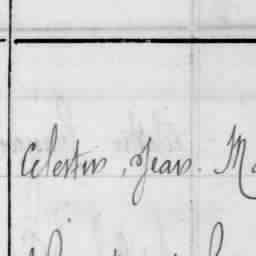 Celestin, Jean. Ma